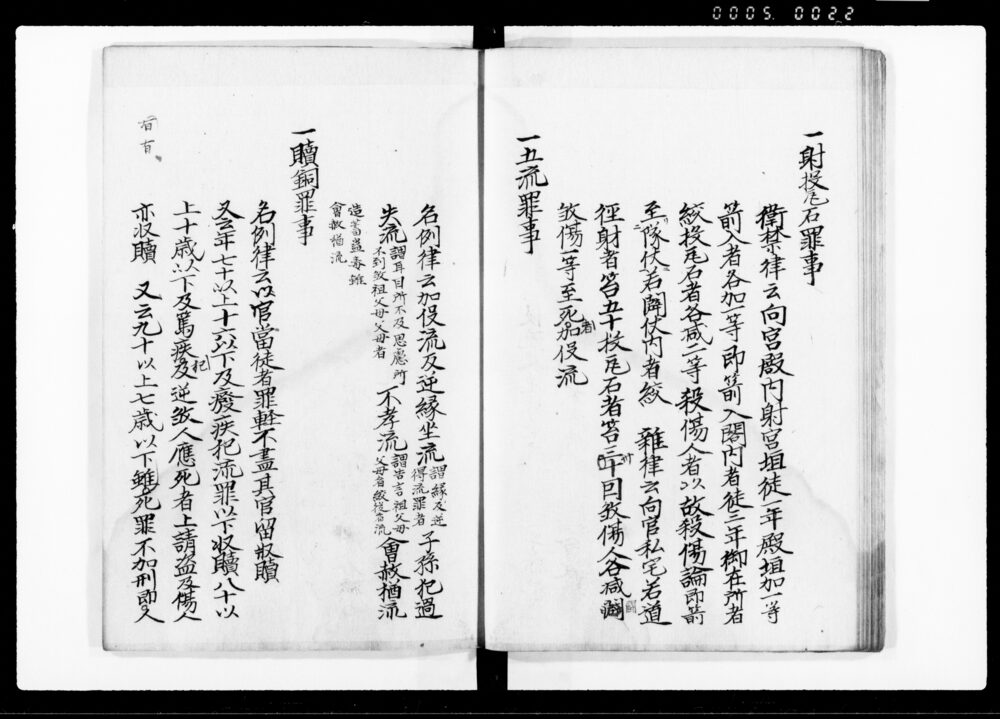 0005.0022
一射投瓦石罪事
衛禁律云向宮殿内射宮垣徒一年殿垣加一等
箭入者各加一等即箭入閤内者徒三年御在所者
絞投瓦石者各减二等殺傷人者以故殺傷論即箭
至隊仗若闢仗内者絞 雜律云向官私宅若道
徑射者笞五十投瓦石者笞卅因煞傷人各减鬪
煞傷一等至死者加役流
一五流罪事
名例律云加役流及逆縁坐流謂縁及逆得流罪者子孫犯過
失流謂耳目所不及思慮所不到煞祖父母父母者不孝流謂告言祖父母父母者絞従者流會赦猶流
造畜蠱毒雖會赦猶流
一贖銅罪事
名例律云以官當徒者罪軽不盡其官留收贖
又云年七十以上十六以下及癈疾犯流罪以下收贖八十以
上十歳以下及篤疾犯及逆煞人應死者上請盗及傷人
亦收贖 又云九十以上七歳以下雖死罪不加刑即人
有有